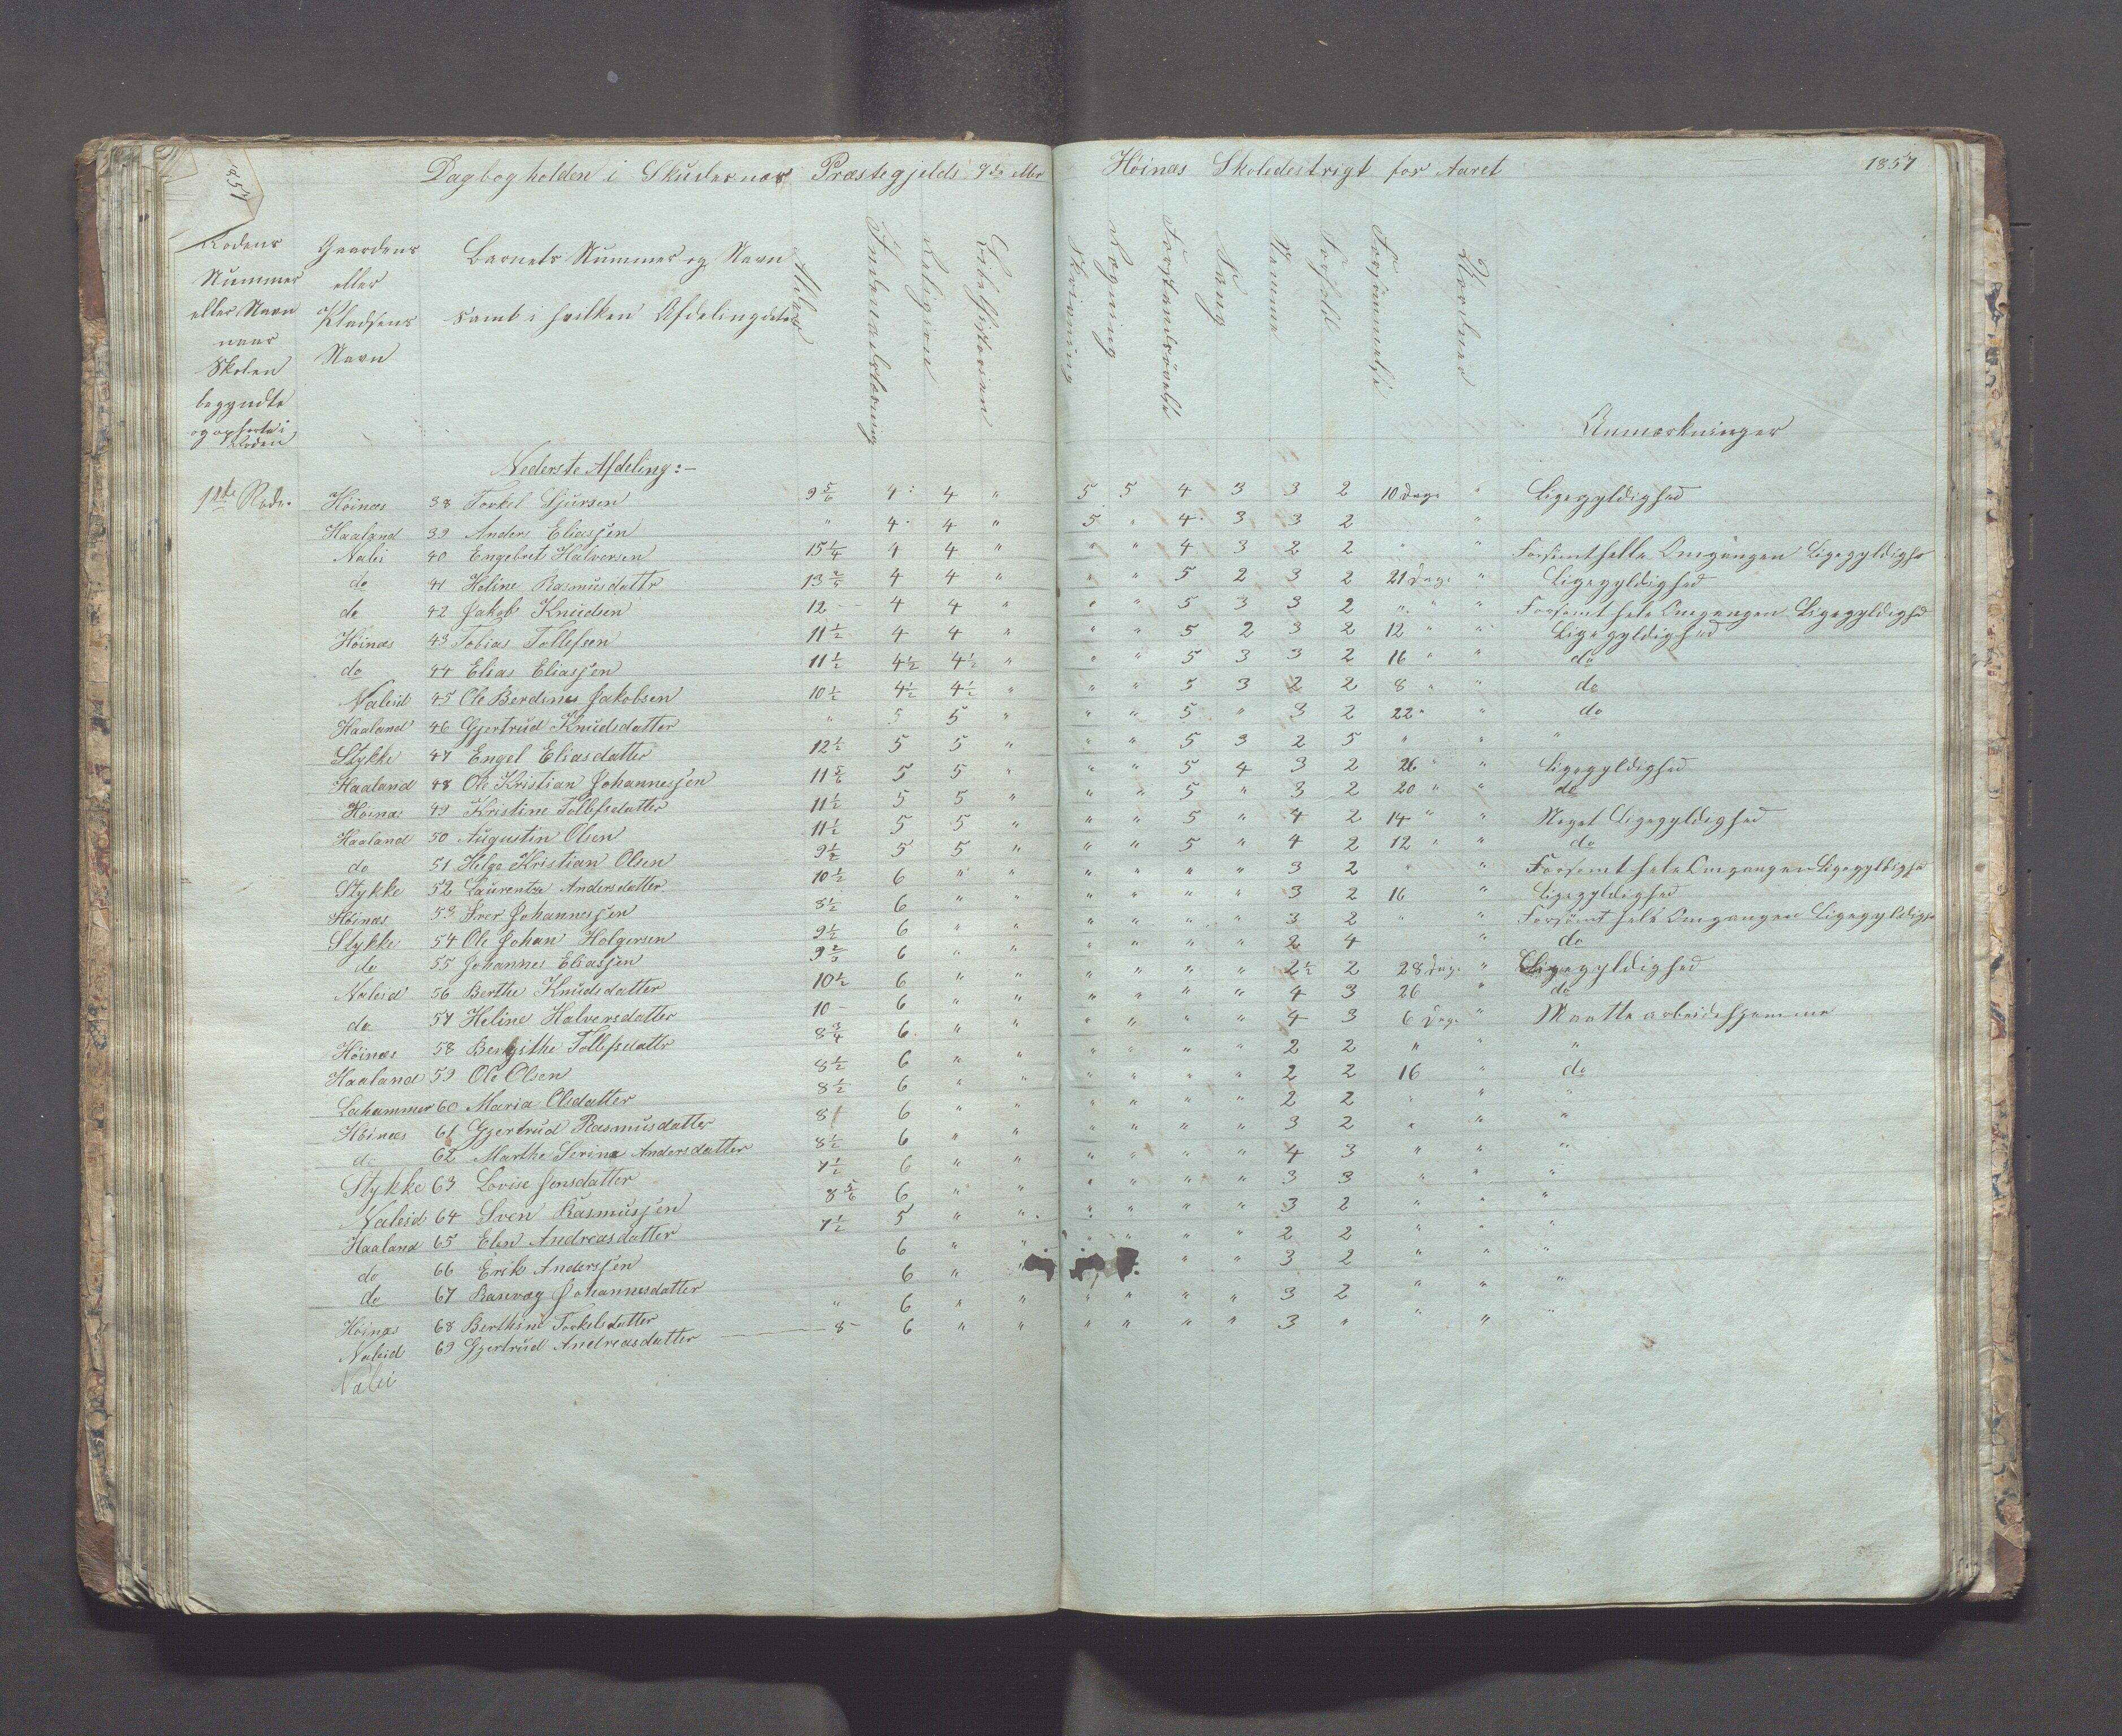 Dagbog holden i Skudesnæs Præstegjelds 7de eller Höinæs Skoledistrigt for Aaret 1857
Rodens Nummer eller Navn naar Skolen begyndte og ophørte i Roden
Gaardens eller Pladsens Navn
Barnets Nummer og Navn samt i hvilken Afdeling det er
Alder
Indenadslæsning
Religion
Bibelhistorien
Skrivning
Regning
Forstandsövelse
Sang
Nemme
Forhold
Forsømmelse
Anmærkninger
Nederste Afdeling:-
1ste Rode. Höinæs 38 Torkel Sjursen 9 5/6 4 4 " 5 5 4 3 3 2 10 Dage " Ligegyldighed
Haaland 39 Anders Eliassen " 4 4 " 5 " 4 3 3 2 "
Nalei 40 Engebret Halversen 15 1/4 4 4 " " " 4 3 2 2 " " Forsømt hele Omgangen Ligegyldighed
do 41 Heline Rasmusdattr 13 4 4 " " " 5 2 3 2 21 Dage " Ligegyldighed
do 42 Jakob Knudsen 12 - 4 4 " " 5 3 3 2 " " " Forsømt hele Omgangen Ligegyldighed
Höinæs 43 Tobias Tollefsen 11 1/2 4 4 " " " 5 2 3 2 12 " " Ligegyldighed
do 44 Elias Eliassen 11 1/2 4 1/2 4 1/2 " " " 5 3 3 2 16 " " do
Naleid 45 Ole Berdines Jakobsen 10 1/2 4 1/2 4 1/2 " " " 5 3 2 2 8 " " do
Haaland 46 Gjertrud Knudsdatter " 5 5 " " " 5 " 3 2 22 " " do
Stykke 47 Engel Eliasdatter 12 1/2 5 5 " " " 5 3 2 5 " " "
Haaland 48 Ole Kristian Johannessen 11 5/6 5 5 " " " 5 4 3 2 26 " " Ligegyldighed
Höinæs 49 Kristine Tollefsdatter 11 1/2 5 5 " " " 5 " 3 2 20 " " do
Haaland 50 Augustin Olsen 11 1/2 5 5 " " " 5 " 4 2 14 " " Meget Ligegyldighed
do 51 Helge Kristian Olsen 9 1/2 5 5 " " " 5 " 4 2 12 " " do
Stykke 52 Laurentze Andersdatter 10 1/2 6 " " " " " " 3 2 " " Forsømt hele Omgangen Ligegyldighed
Höinæs 53 Iver Johannessen 8 1/2 6 " " " " " " 3 2 16 " Ligegyldighed
Stykke 54 Ole Johan Holgersen 9 1/2 6 " " " " " " 3 2 " " Forsømt hele Omgangen Ligegyldighed
do 55 Johannes Eliassen 9 6 " " " " " " 2 4 " do
Naleid 56 Berthe Knudsdatter 10 1/2 6 " " " " " " 2 1/2 2 28 Dage " Ligegyldighed
do 57 Heline Halversdatter 10 - 6 " " " " " " 4 3 26 " do
Höinæs 58 Bergithe Tollefsdattr 8 3/4 6 " " " " " " 4 3 6 Dage " Maatte arbeide hjemme
Haaland 59 Ole Olsen 8 1/2 6 " " " " " " 2 2 " " "
Lahammer 60 Maria Olsdatter 8 1/2 6 " " " " " " 2 2 16 " do
Höinæs 61 Gjertrud Rasmusdatter 8 6 " " " " " " 2 2 " " "
do 62 Marthe Serina Andersdatter 8 1/2 6 " " " " " " 3 2 " " "
Stykke 63 Lovise Jensdatter 7 1/2 6 " " " " " " 4 3 " " "
Naleid 64 Sven Rasmussen 8 5/6 6 " " " " " " 3 3 " " "
Haaland 65 Elen Andreasdatter 7 1/2 5 " " " " " " 3 2 " " "
do 66 Erik Anderssen 6 " " " " " " 2 2 " " "
do 67 Johannesdatter 6 " " " " 3 2 " " "
Höinæs 68 Berthine Torkelsdatter " 6 " " " " " " 3 2 " " "
Naleid 69 Gjertrud Andreasdatter 8 - 6 " " " " " " 3 " " " "
Nalei